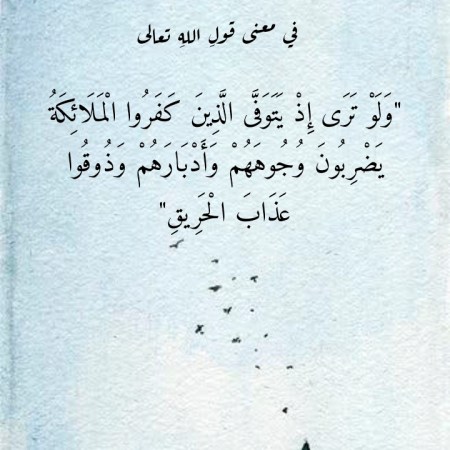 في معنى قولِ اللهِ تعالى
"وَلَوْ تَرَى إِذْ يَتَوَفَّى الَّذِينَ كَفَرُوا الْمَلَائِكَةُ
يَضْرِبُونَ وُجُوهَهُمْ وَأَدْبَارَهُمْ وَذُوقُوا
عَذَابَ الْحَرِيقِ"